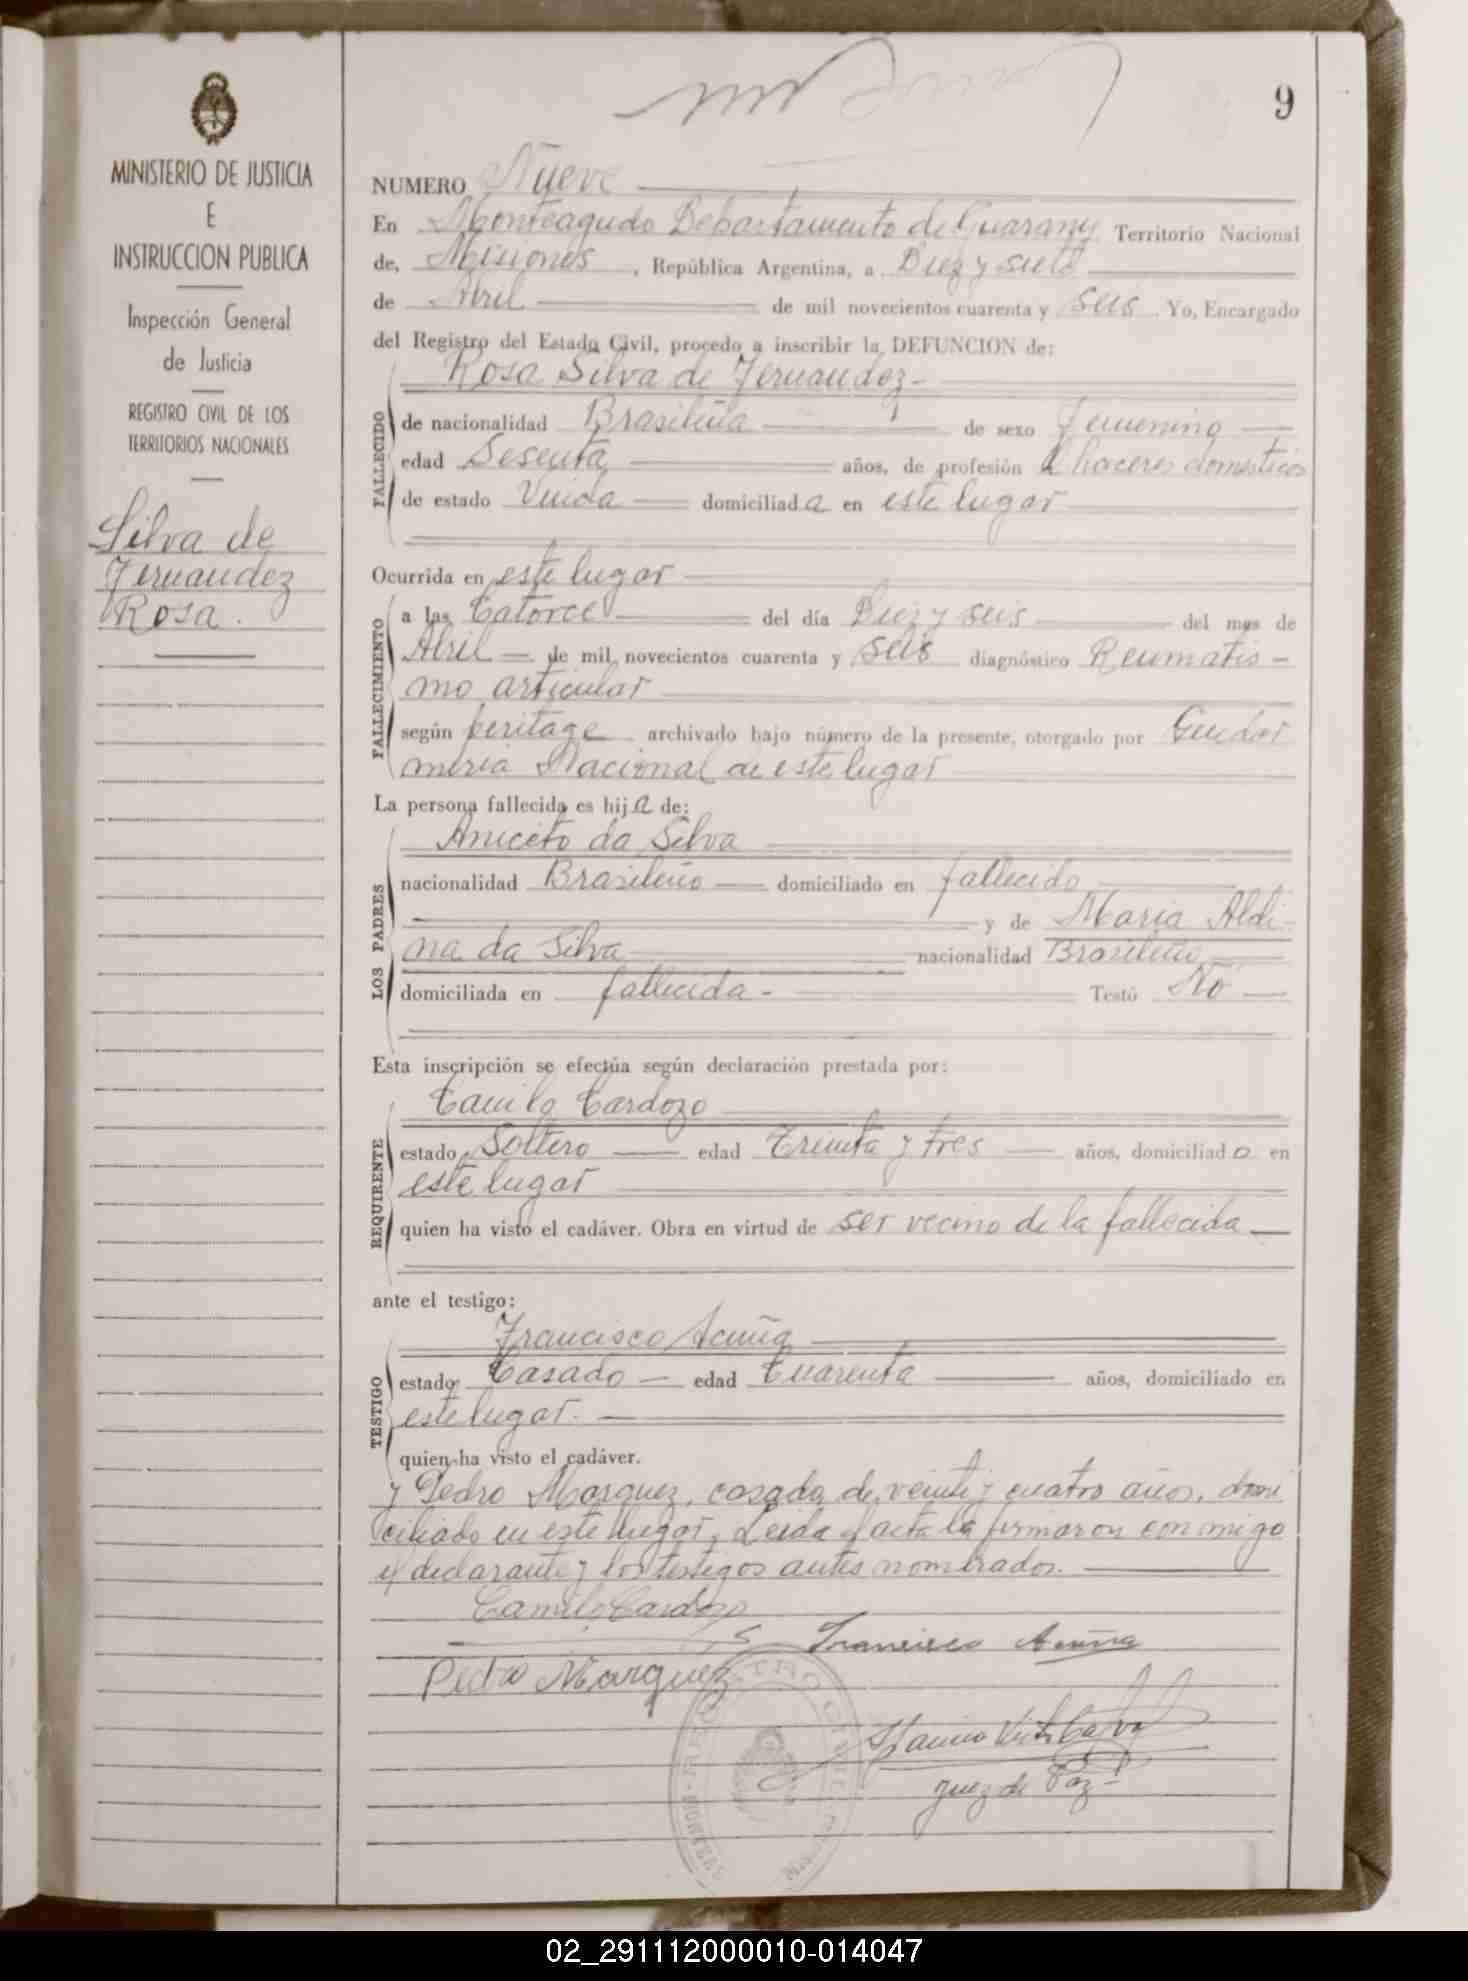 9
MINISTERIO DE JUSTICIA
E
INSTRUCCION PUBLICA
Inspección General
de Justicia
REGISTRO CIVIL DE LOS
TERRITORIOS NACIONALES
Silva de
Fernandez
Rosa.
NUMERO Nueve
En Monteagudo Departamento de Guarany Territorio Nacional
de, Misiones, República Argentina, a Diez y siete
de Abril de mil novecientos cuarenta y seis. Yo, Encargado
del Registro del Estado Civil, procedo a inscribir la DEFUNCION de:
Rosa Silva de Fernandez-
FALLECIDO
de nacionalidad Brasileña de sexo Femenino
edad Sesenta años, de profesión Qhaceres domesticos
de estado Viuda domiciliada en este lugar
Ocurrida en este lugar
FALLECIMIENTO
a las Catorce del día Diez y seis del mes de
Abril de mil novecientos cuarenta y seis diagnóstico Reumatis-
mo articular
según peritage archivado bajo número de la presente, otorgado por Gendar
meria Nacional de este lugar
La persona fallecida es hija de:
LOS PADRES
Aniceto da Silva
nacionalidad Brasileño domiciliado en fallecido
y de Maria Aldi-
na da Silva nacionalidad Brasileño
domiciliada en fallecida- Testó No
Esta inscripción se efectúa según declaración prestada por:
REQUIRENTE
Camilo Cardozo
estado Soltero edad Treinta y tres años, domiciliado en
este lugar
quien ha visto el cadáver. Obra en virtud de ser vecino de la fallecida
ante el testigo:
TESTIGO
Francisco Acuña
estado Casado edad Cuarenta años, domiciliado en
este lugar.
quien ha visto el cadáver.
y Pedro Marquez, casado, de veinte y cuatro años, domi
ciliado en este lugar, Leida el acta la firmaron conmigo
el declarante y los testigos antes nombrados.
Camilo Cardozo
Francisco Acuña
Pedro Marquez
Juez de Paz
02_291112000010-014047